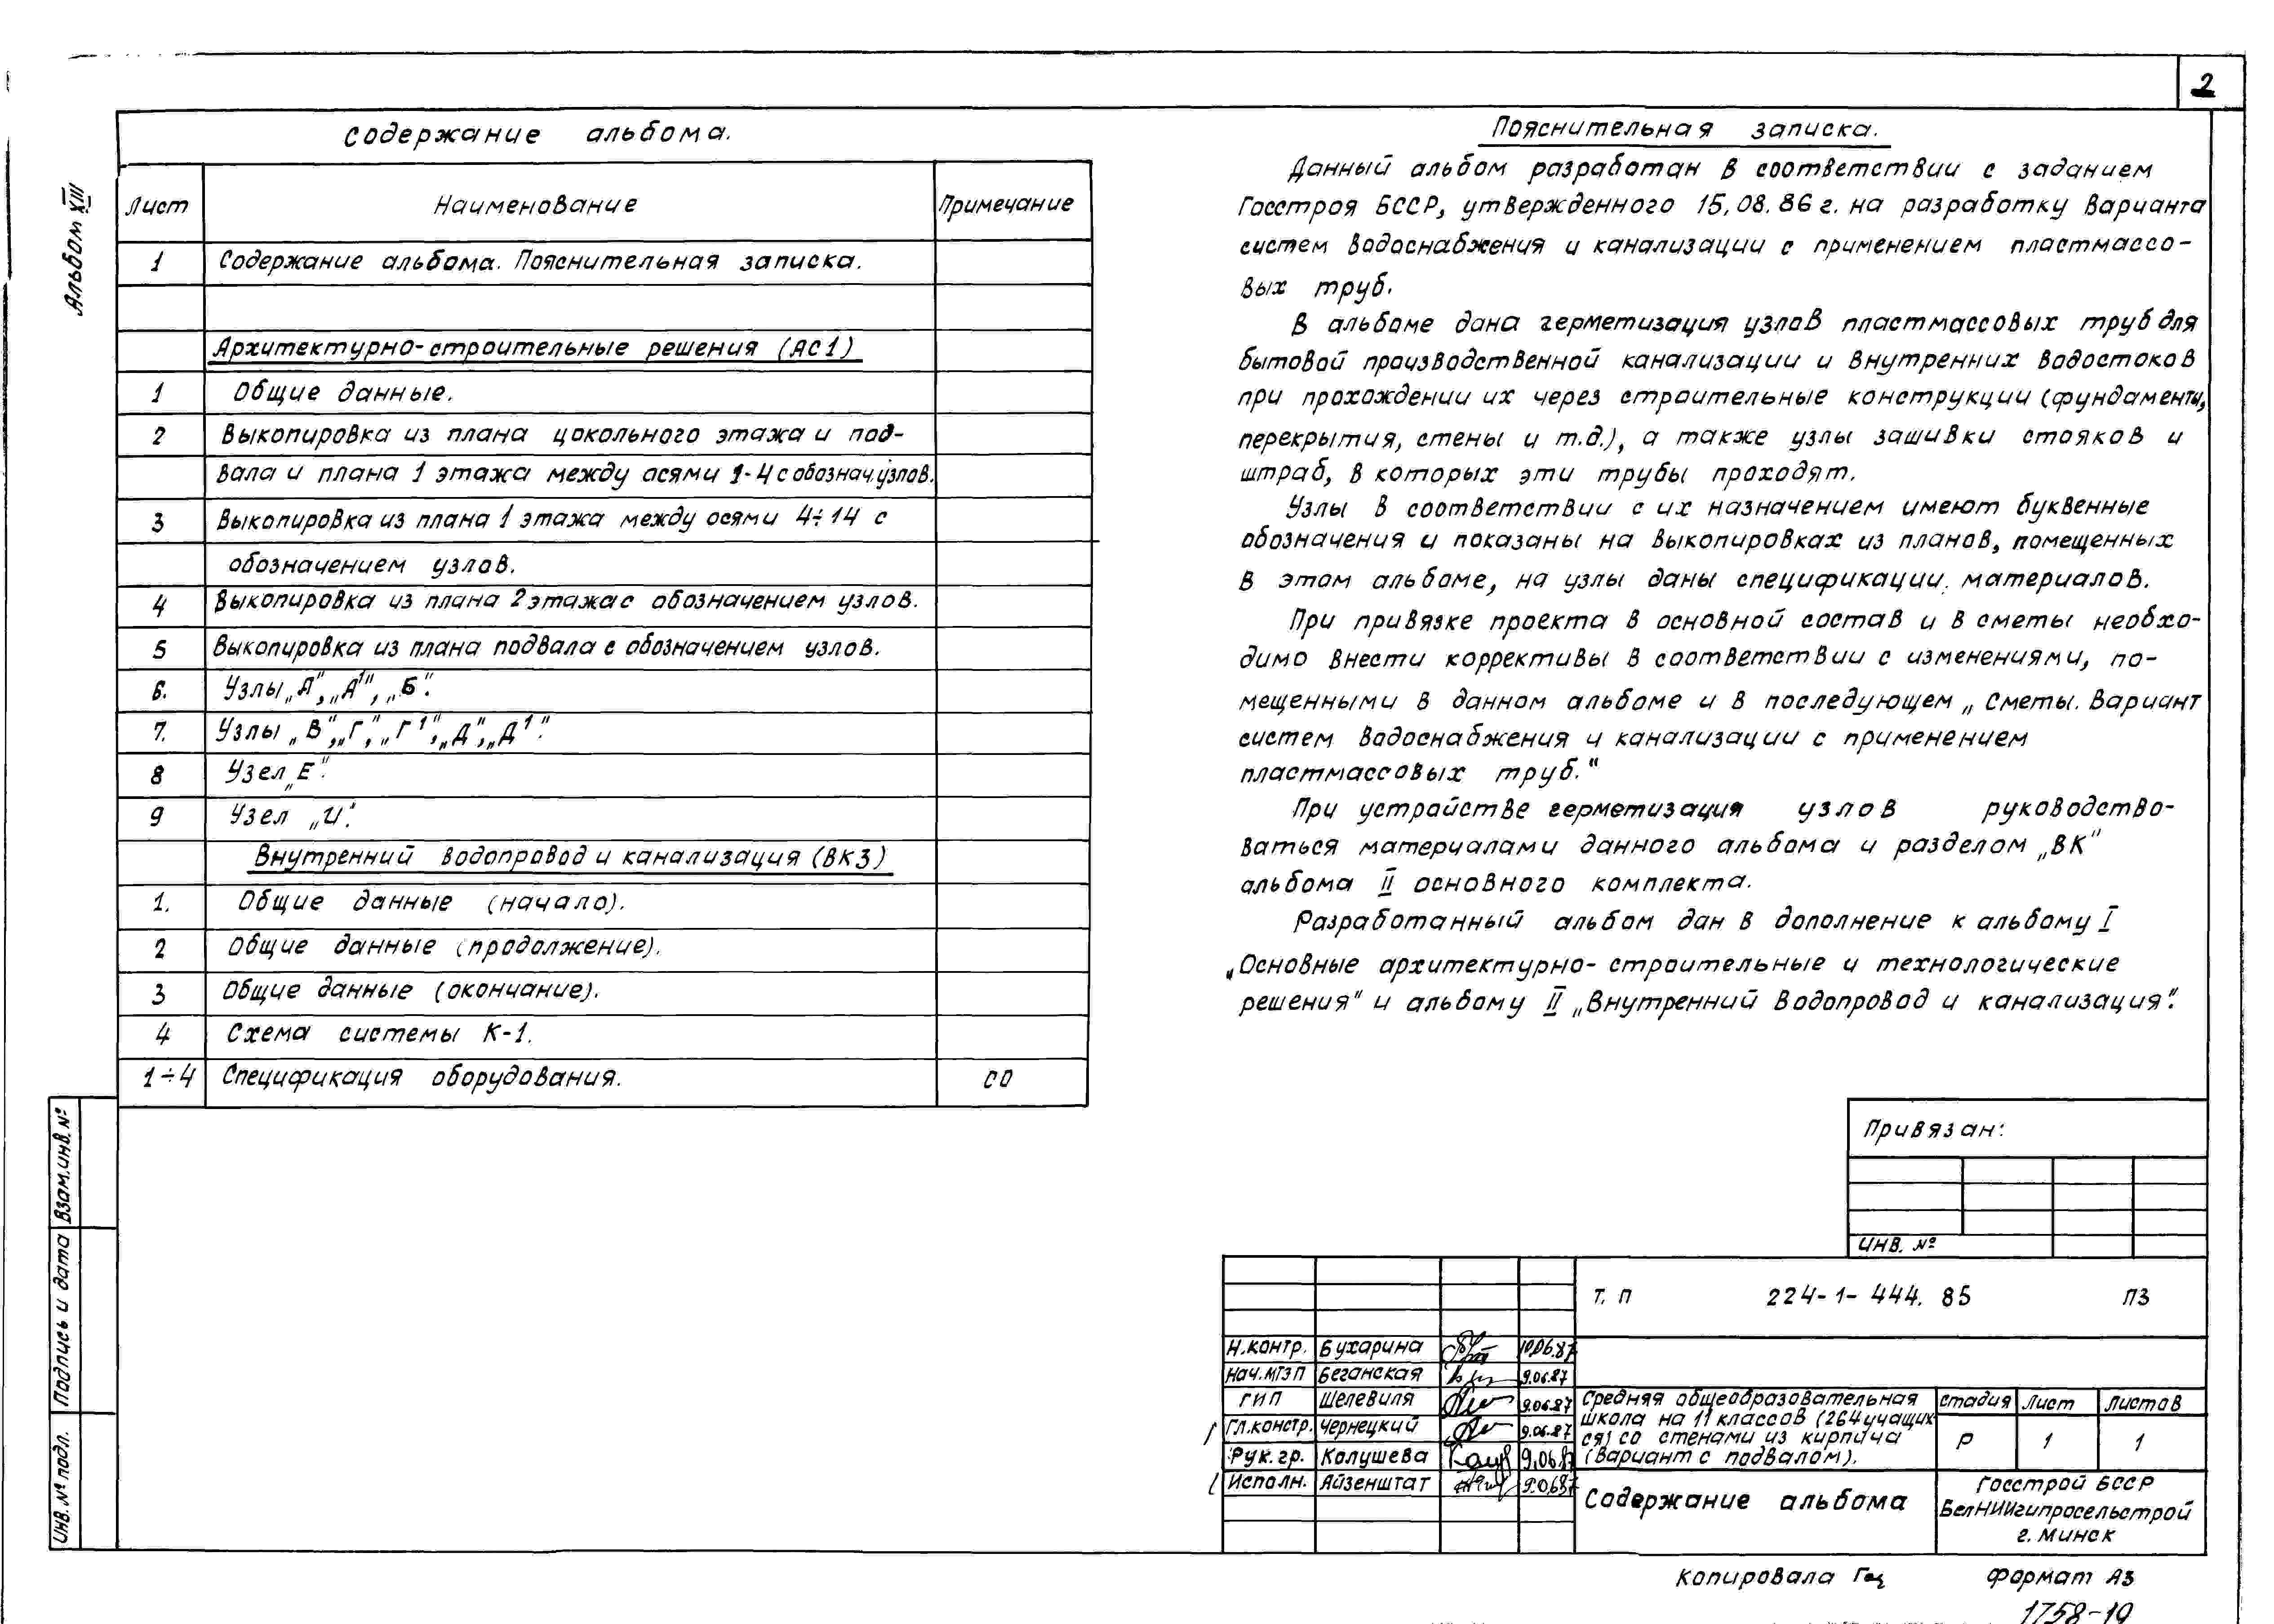 2
Альбом XIII
Содержание альбома.
Лист Наименование Примечание
1 Содержание альбома. Пояснительная записка.
Архитектурно-строительные решения (АС1)
1 Общие данные.
2 Выкопировка из плана цокольного этажа и под-
вала и плана 1 этажа между осями 1-4 с обознач. узлов.
3 Выкопировка из плана 1 этажа между осями 4÷14 с
обозначением узлов.
4 Выкопировка из плана 2 этажа с обозначением узлов.
5 Выкопировка из плана подвала с обозначением узлов.
6. Узлы „А", „А¹", „Б".
7. Узлы „В", „Г", „Г¹", „Д", „Д¹".
8 Узел „Е".
9 Узел „И".
Внутренний водопровод и канализация (ВК3)
1. Общие данные (начало).
2 Общие данные (продолжение).
3 Общие данные (окончание).
4 Схема системы К-1.
1÷4 Спецификация оборудования. СО
Пояснительная записка.
Данный альбом разработан в соответствии с заданием
Госстроя БССР, утвержденного 15.08.86 г. на разработку варианта
систем водоснабжения и канализации с применением пластмассо-
вых труб.
В альбоме дана герметизация узлов пластмассовых труб для
бытовой производственной канализации и внутренних водостоков
при прохождении их через строительные конструкции (фундаменты,
перекрытия, стены и т.д.), а также узлы зашивки стояков и
штраб, в которых эти трубы проходят.
Узлы в соответствии с их назначением имеют буквенные
обозначения и показаны на выкопировках из планов, помещенных
в этом альбоме, на узлы даны спецификации материалов.
При привязке проекта в основной состав и в сметы необхо-
димо внести коррективы в соответствии с изменениями, по-
мещенными в данном альбоме и в последующем „Сметы. Вариант
систем водоснабжения и канализации с применением
пластмассовых труб."
При устройстве герметизация узлов руководство-
ваться материалами данного альбома и разделом „ВК"
альбома II основного комплекта.
Разработанный альбом дан в дополнение к альбому I
„Основные архитектурно-строительные и технологические
решения" и альбому II „Внутренний водопровод и канализация".
Привязан:
Инв. №
Т. П 224-1-444.85 ПЗ
Н.контр. Бухарина 10.06.87
Нач.МТЭП Беганская 9.06.87
ГИП Шелевиля 9.06.87
Гл.констр. Чернецкий 9.06.87
Рук. гр. Колушева 9.06.87
Исполн. Айзенштат 9.06.87
Средняя общеобразовательная
школа на 11 классов (264 учащих-
ся) со стенами из кирпича
(Вариант с подвалом).
Стадия Лист Листов
Р 1 1
Содержание альбома
Госстрой БССР
БелНИИгипросельстрой
г. Минск
Инв. № подл. Подпись и дата Взам.инв.№
Копировала Формат А3
1758-19